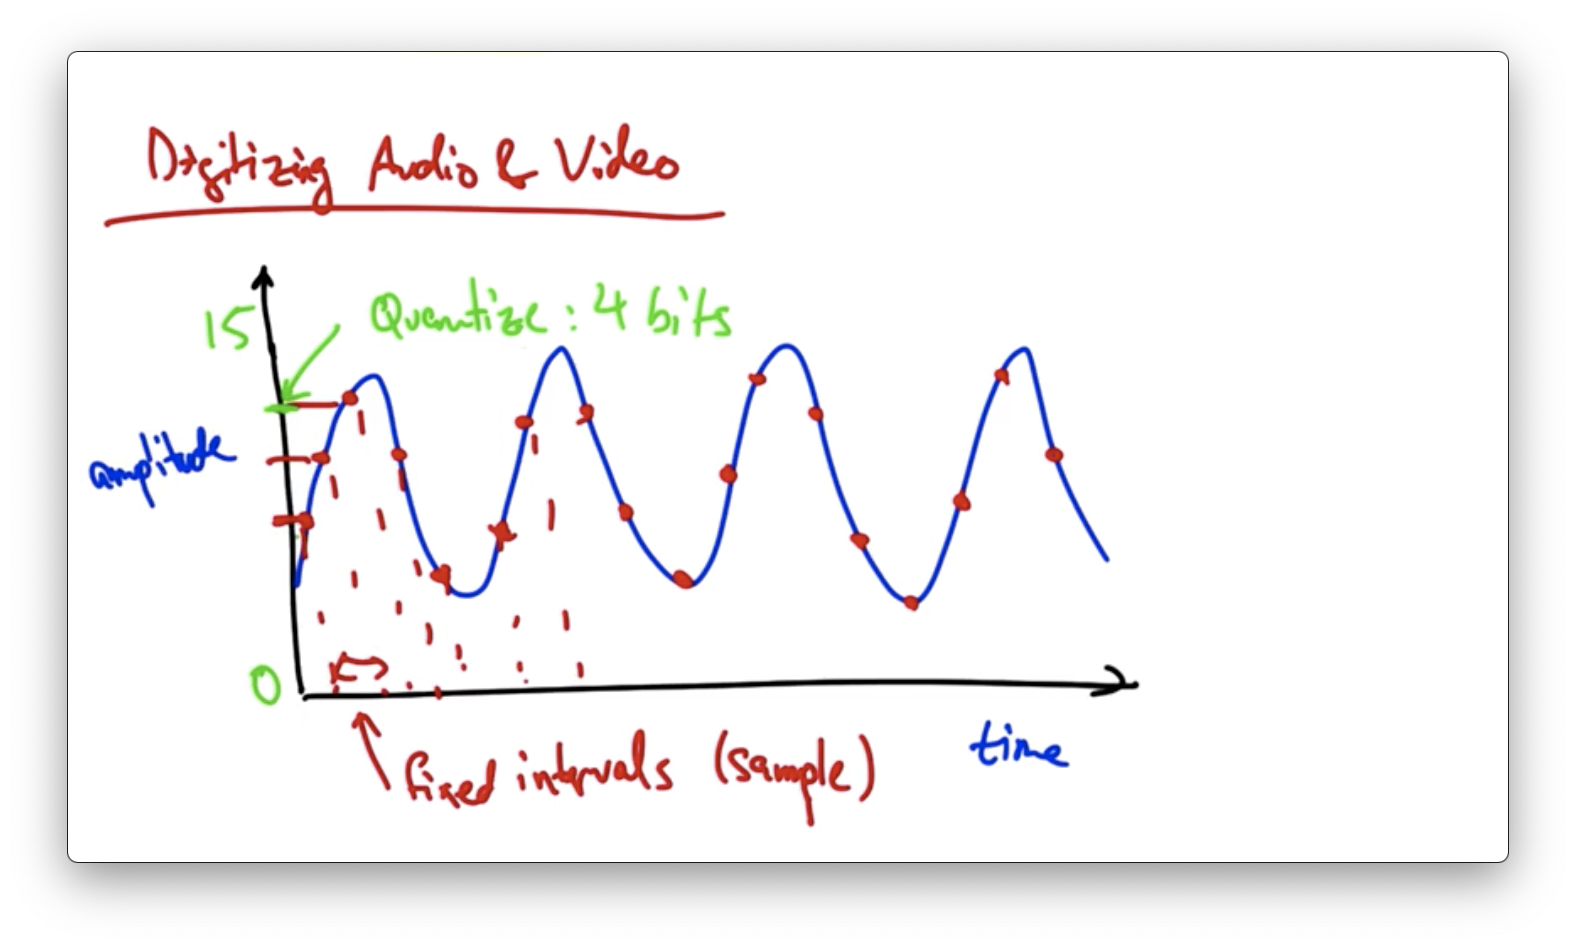 Digitizing Audio & Video
15
Quantize: 4 bits
amplitude
0
time
fixed intervals (sample)